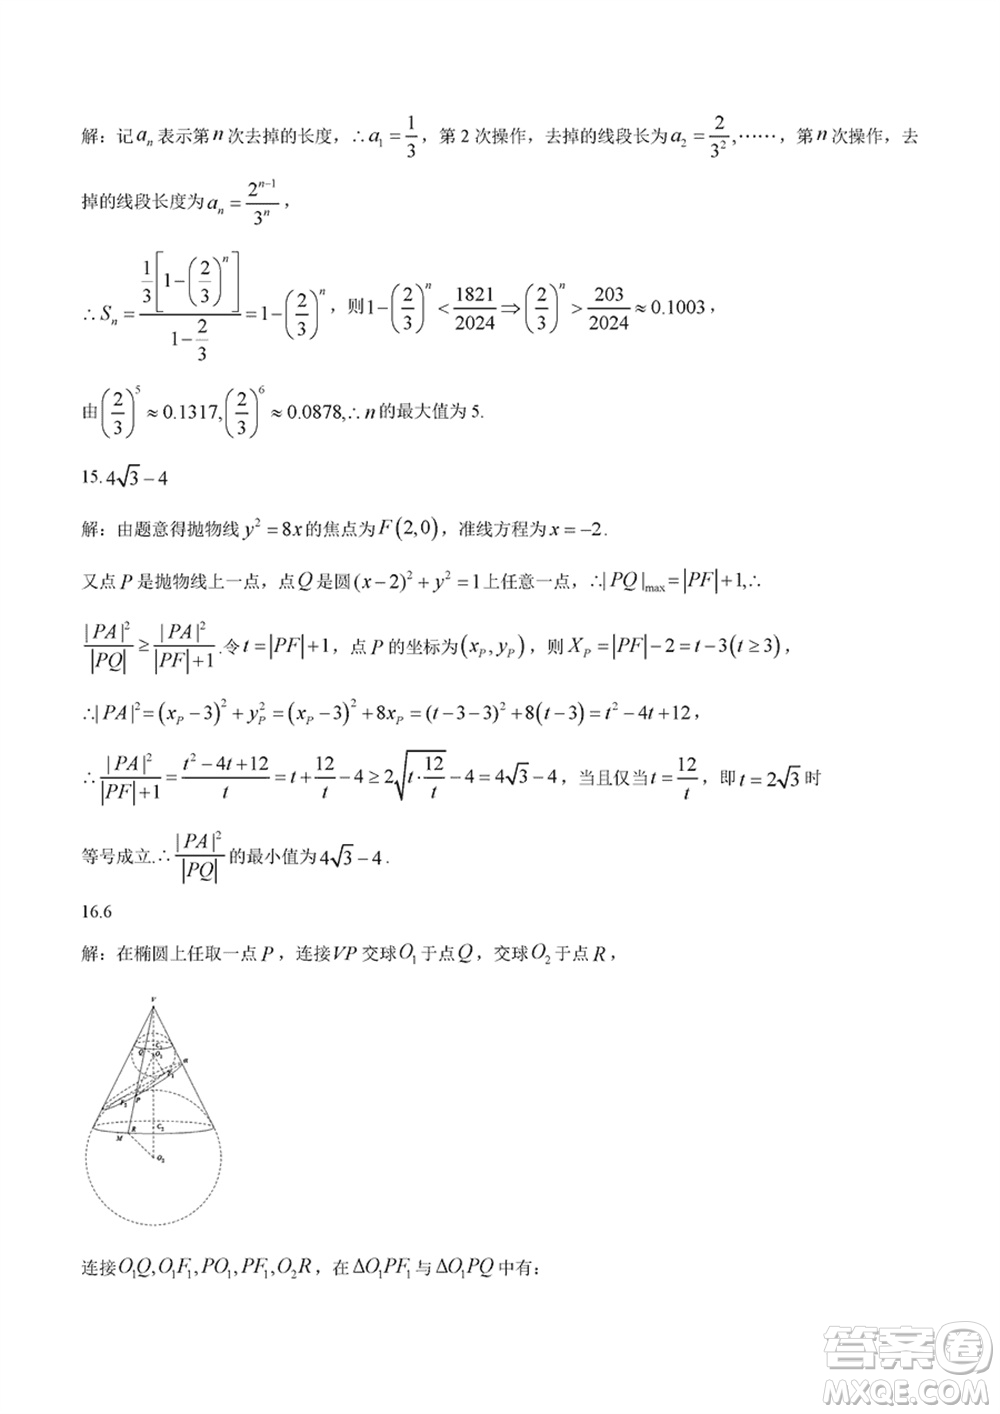 解：记 aₙ 表示第 n 次去掉的长度，∴ a₁ = 1/3，第 2 次操作，去掉的线段长为 a₂ = 2/3²,……，第 n 次操作，去
掉的线段长度为 aₙ = 2ⁿ⁻¹/3ⁿ，
∴ Sₙ = (1/3[1−(2/3)ⁿ])/(1−2/3) = 1−(2/3)ⁿ，则 1−(2/3)ⁿ < 1821/2024 ⇒ (2/3)ⁿ > 203/2024 ≈ 0.1003，
由 (2/3)⁵ ≈ 0.1317, (2/3)⁶ ≈ 0.0878, ∴ n 的最大值为 5.
15. 4√3 − 4
解：由题意得抛物线 y² = 8x 的焦点为 F(2,0)，准线方程为 x = −2.
又点 P 是抛物线上一点，点 Q 是圆 (x−2)² + y² = 1 上任意一点，∴|PQ|max = |PF|+1, ∴
|PA|²/|PQ| ≥ |PA|²/(|PF|+1). 令 t = |PF|+1，点 P 的坐标为 (x_P, y_P)，则 X_P = |PF|−2 = t−3(t ≥ 3)，
∴|PA|² = (x_P−3)² + y_P² = (x_P−3)² + 8x_P = (t−3−3)² + 8(t−3) = t² − 4t + 12，
∴ |PA|²/(|PF|+1) = (t²−4t+12)/t = t + 12/t − 4 ≥ 2√(t·12/t) − 4 = 4√3 − 4，当且仅当 t = 12/t，即 t = 2√3 时
等号成立. ∴ |PA|²/|PQ| 的最小值为 4√3 − 4.
16.6
解：在椭圆上任取一点 P，连接 VP 交球 O₁ 于点 Q，交球 O₂ 于点 R，
V
C₁
Q O₁
α
F₁
F₂ P
C₂
M R
O₂
连接 O₁Q, O₁F₁, PO₁, PF₁, O₂R，在 ΔO₁PF₁ 与 ΔO₁PQ 中有：
答案卷
MXQE.COM